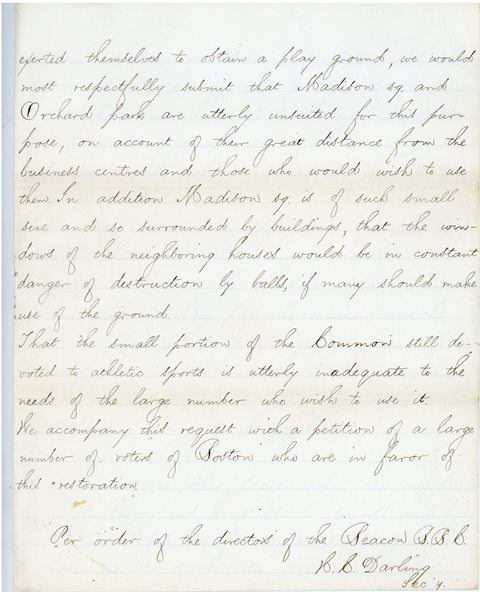 exerted themselves to obtain a play ground, we would
most respectfully submit that Madison sq. and
Orchard park are utterly unsuited for this pur-
pose, on account of their great distance from the
business centres and those who would wish to use
them. In addition Madison sq. is of such small
size and so surrounded by buildings, that the win-
dows of the neighboring houses would be in constant
danger of destruction by balls, if many should make
use of the ground.
That the small portion of the Common still de-
voted to athletic sports is utterly inadequate to the
needs of the large number who wish to use it.
We accompany this request with a petition of a large
number of voters of Boston who are in favor of
this restoration.
Per order of the directors of the Beacon B. B. C.
Darling
Sec'y.